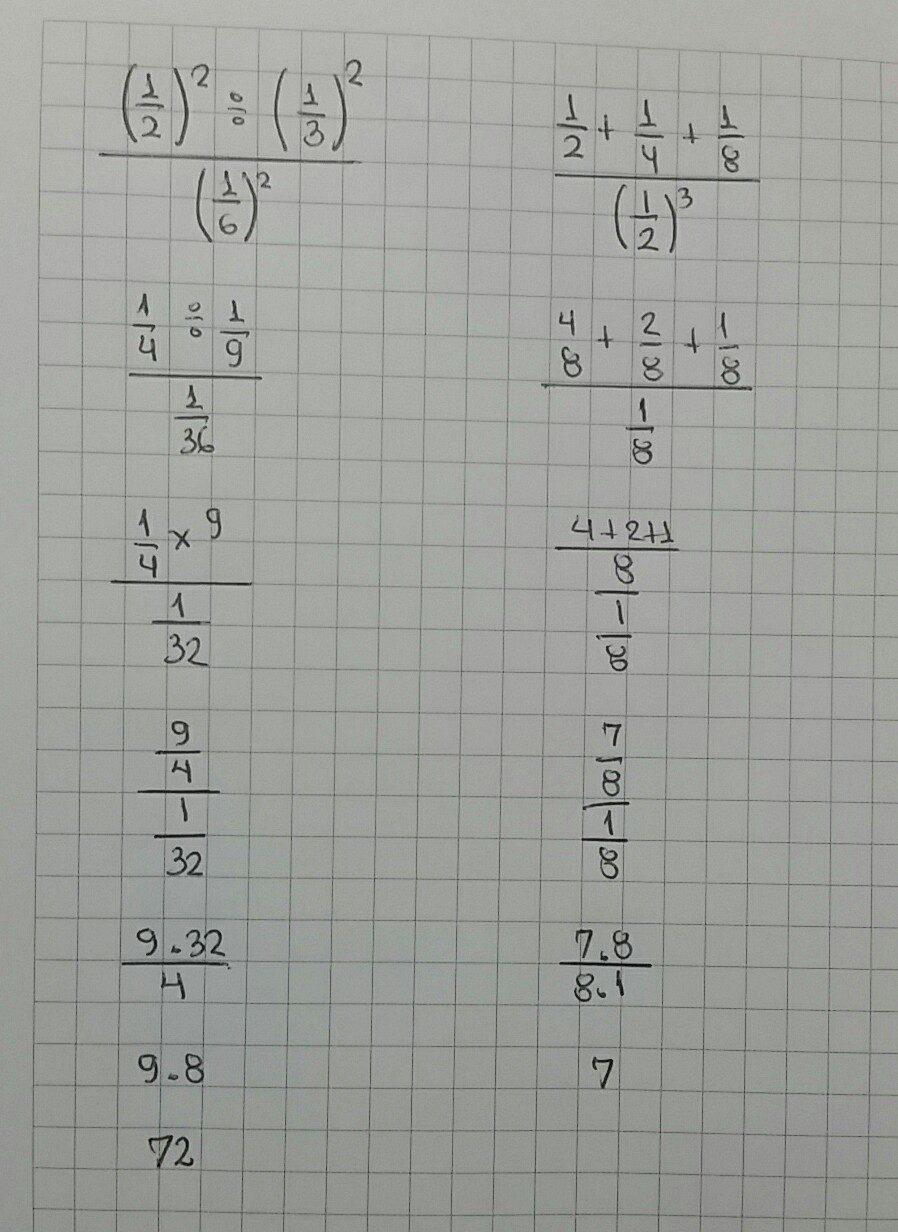 (1/2)² ÷ (1/3)²
(1/6)²
1/4 ÷ 1/9
1/36
1/4 × 9
1/32
9/4
1/32
9.32
4
9.8
72
1/2 + 1/4 + 1/8
(1/2)³
4/8 + 2/8 + 1/8
1/8
4+2+1
8
1/8
7/8
1/8
7.8
8.1
7